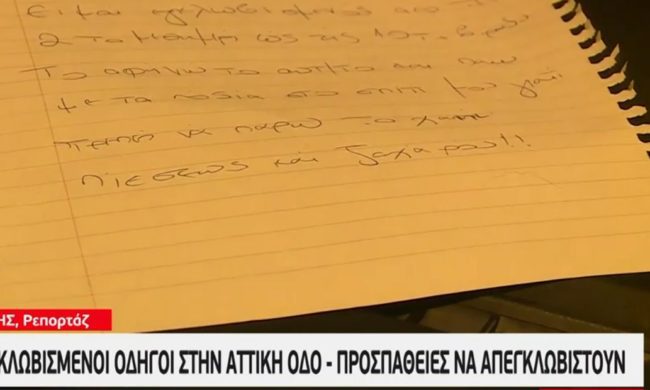 Είμαι εγκλωβισμένος από
2 το μεσημέρι ως τις
Το αφήνω το αυτ/το και πάω
με τα πόδια στο σπίτι μου γιατί
πρέπει να πάρω το χάπι
πιέσεως και ζαχάρου!!
ΗΣ, Ρεπορτάζ
ΚΛΩΒΙΣΜΕΝΟΙ ΟΔΗΓΟΙ ΣΤΗΝ ΑΤΤΙΚΗ ΟΔΟ - ΠΡΟΣΠΑΘΕΙΕΣ ΝΑ ΑΠΕΓΚΛΩΒΙΣΤΟΥΝ